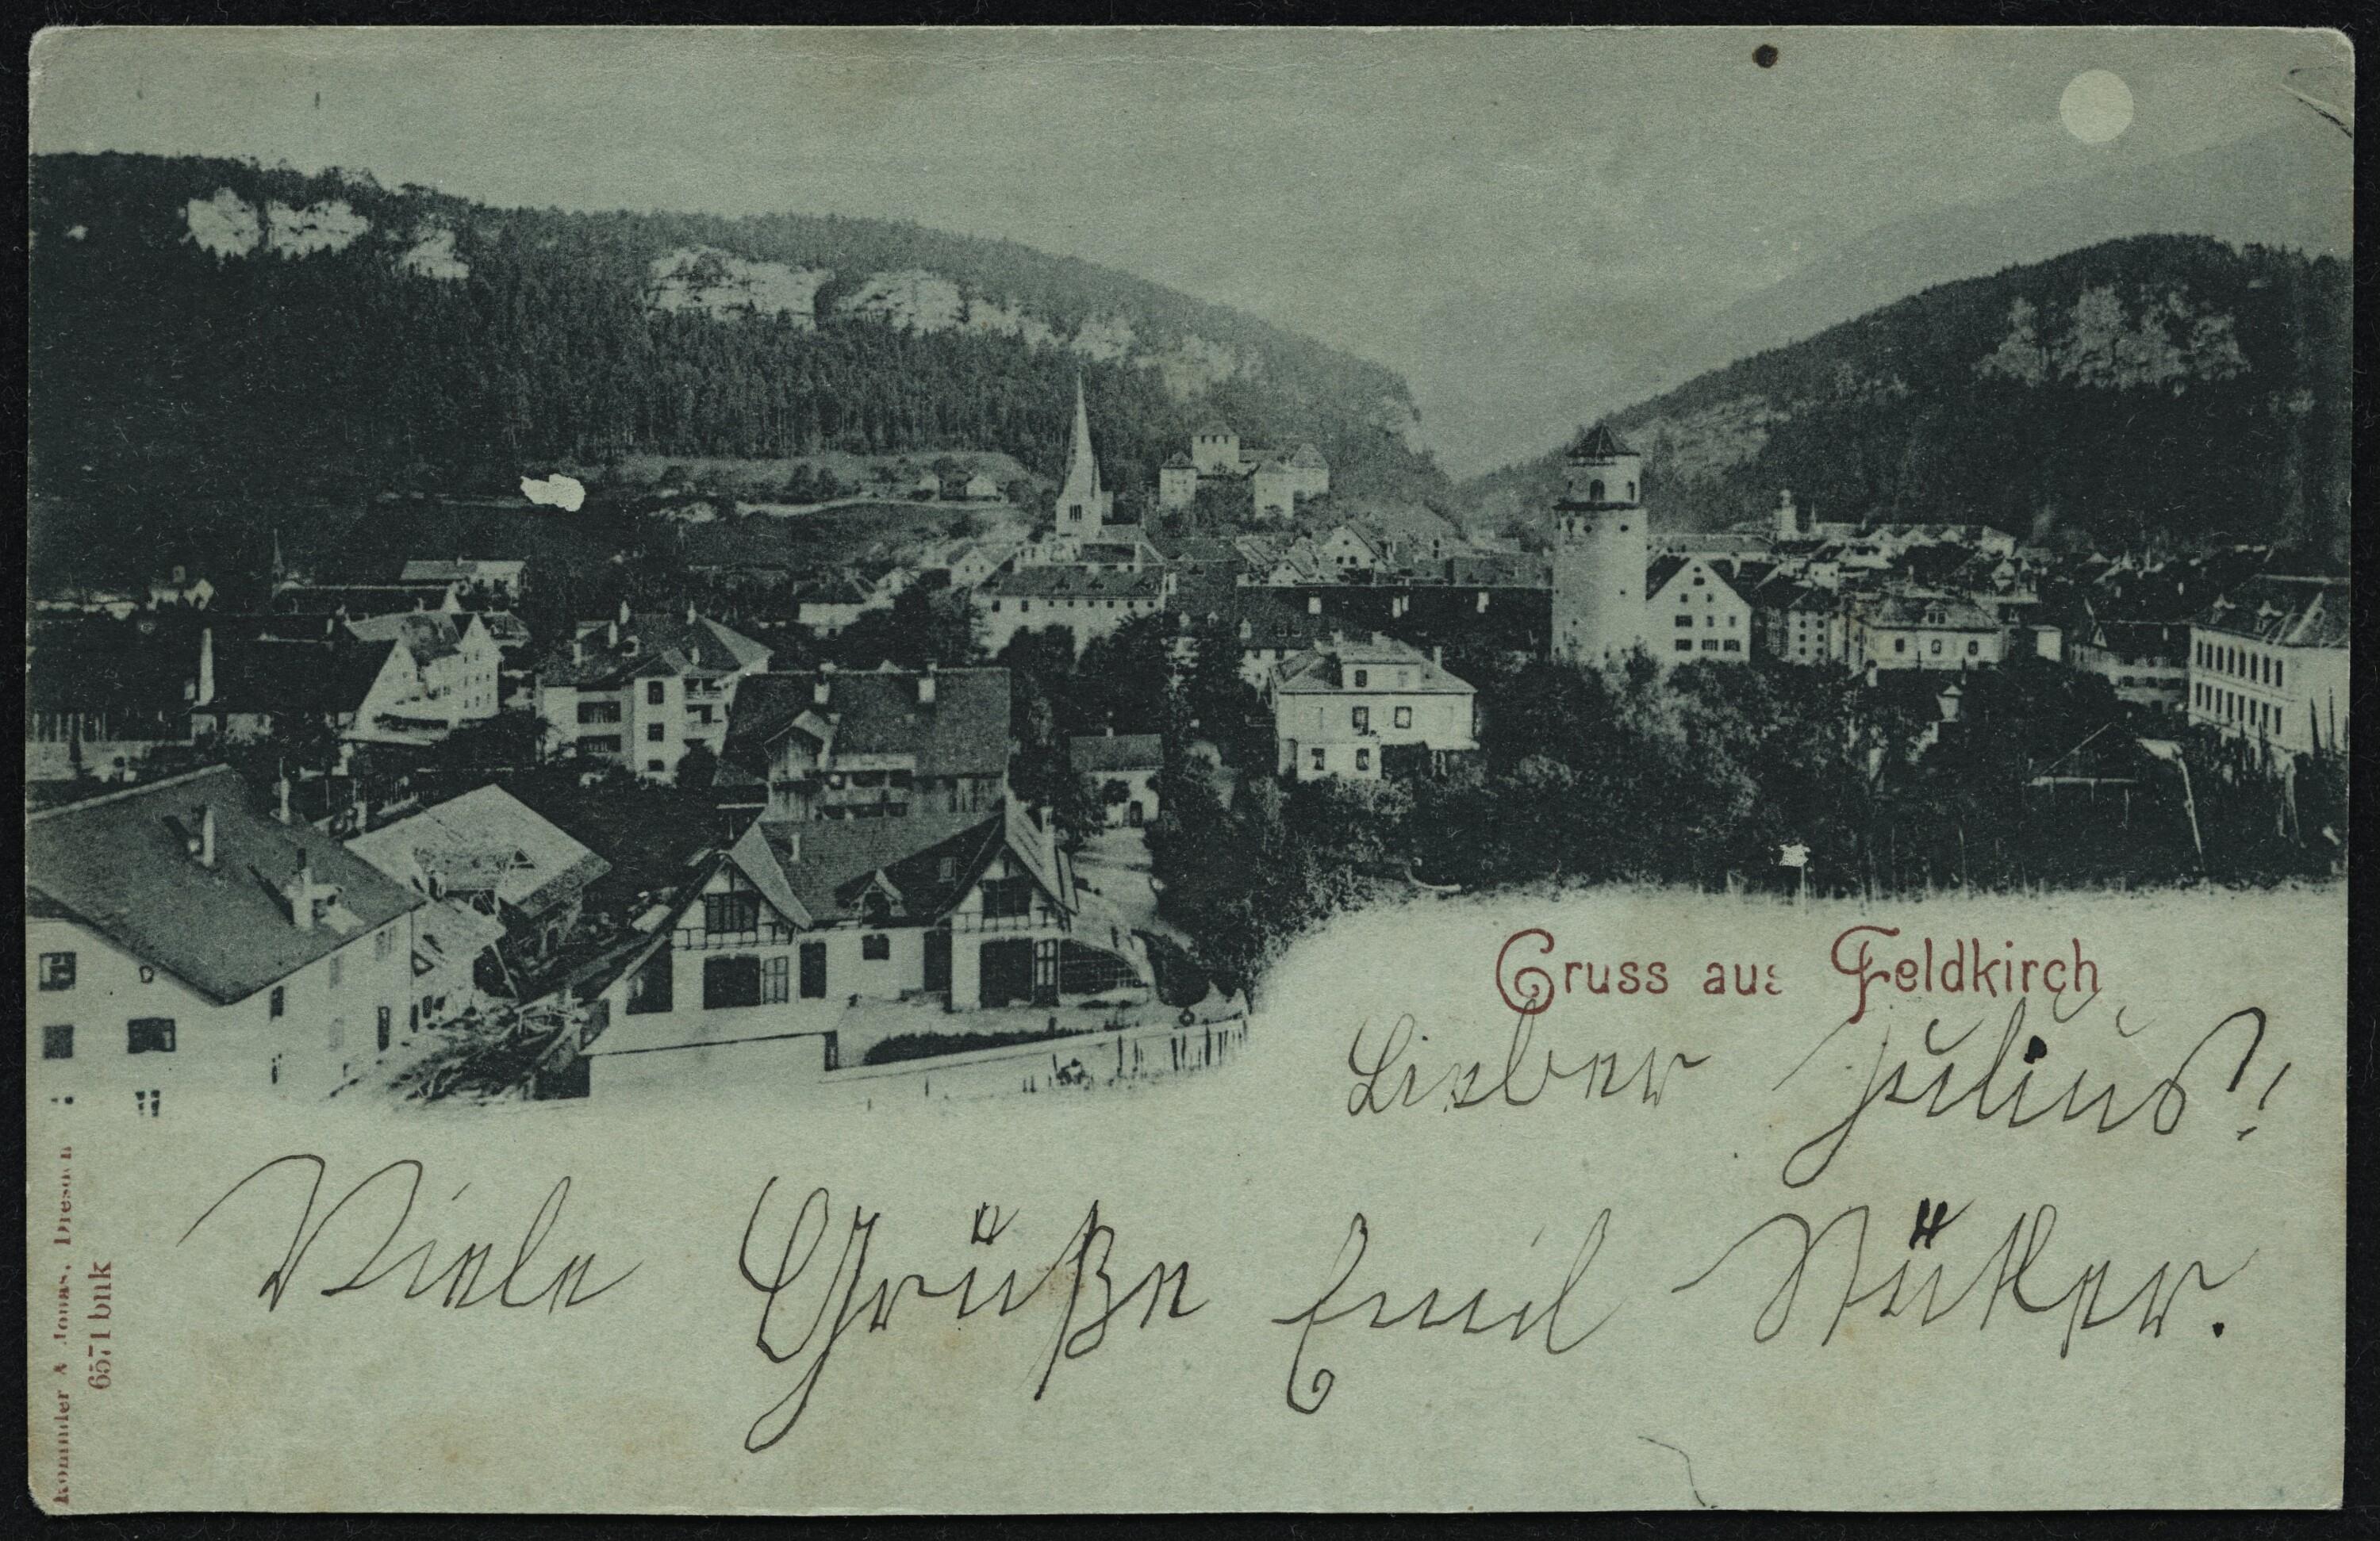 Gruss aus Feldkirch
Lieber Julius!
Viele Grüße Emil
Kommler & Jonas, Dresden
6571 bnk